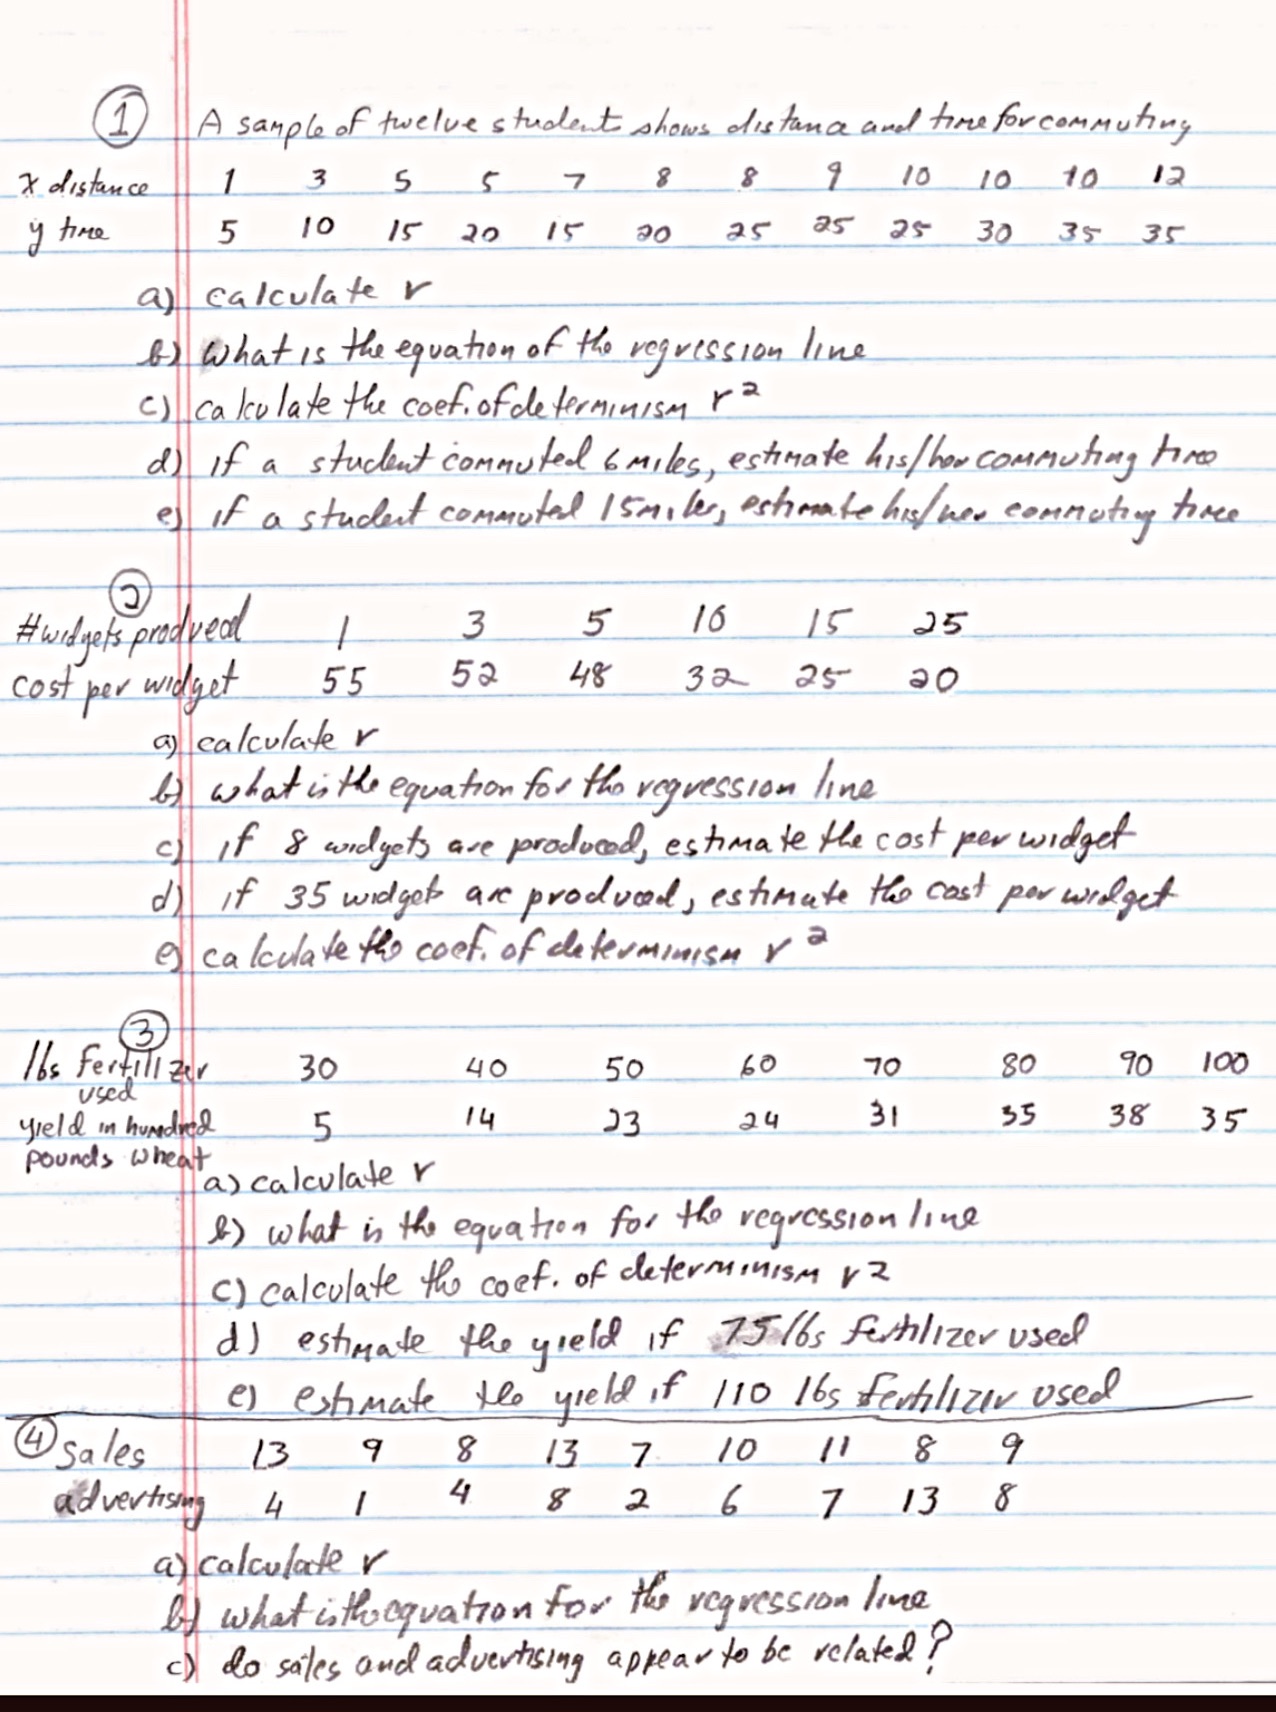 ① A sample of twelve student shows distance and time for commuting
x distance 1 3 5 5 7 8 8 9 10 10 10 12
y time 5 10 15 20 15 20 25 25 25 30 35 35
a) calculate r
b) what is the equation of the regression line
c) calculate the coef. of determinism r²
d) if a student commuted 6 miles, estimate his/her commuting time
e) if a student commuted 15 miles, estimate his/her commuting time
②
# widgets produced 1 3 5 10 15 25
cost per widget 55 52 48 32 25 20
a) calculate r
b) what is the equation for the regression line
c) if 8 widgets are produced, estimate the cost per widget
d) if 35 widgets are produced, estimate the cost per widget
e) calculate the coef. of determinism r²
③
lbs fertilizer 30 40 50 60 70 80 90 100
used
yield in hundred 5 14 23 24 31 35 38 35
pounds wheat
a) calculate r
b) what is the equation for the regression line
c) calculate the coef. of determinism r2
d) estimate the yield if 75 lbs fertilizer used
e) estimate the yield if 110 lbs fertilizer used
④ Sales 13 9 8 13 7 10 11 8 9
advertising 4 1 4 8 2 6 7 13 8
a) calculate r
b) what is the equation for the regression line
c) do sales and advertising appear to be related?